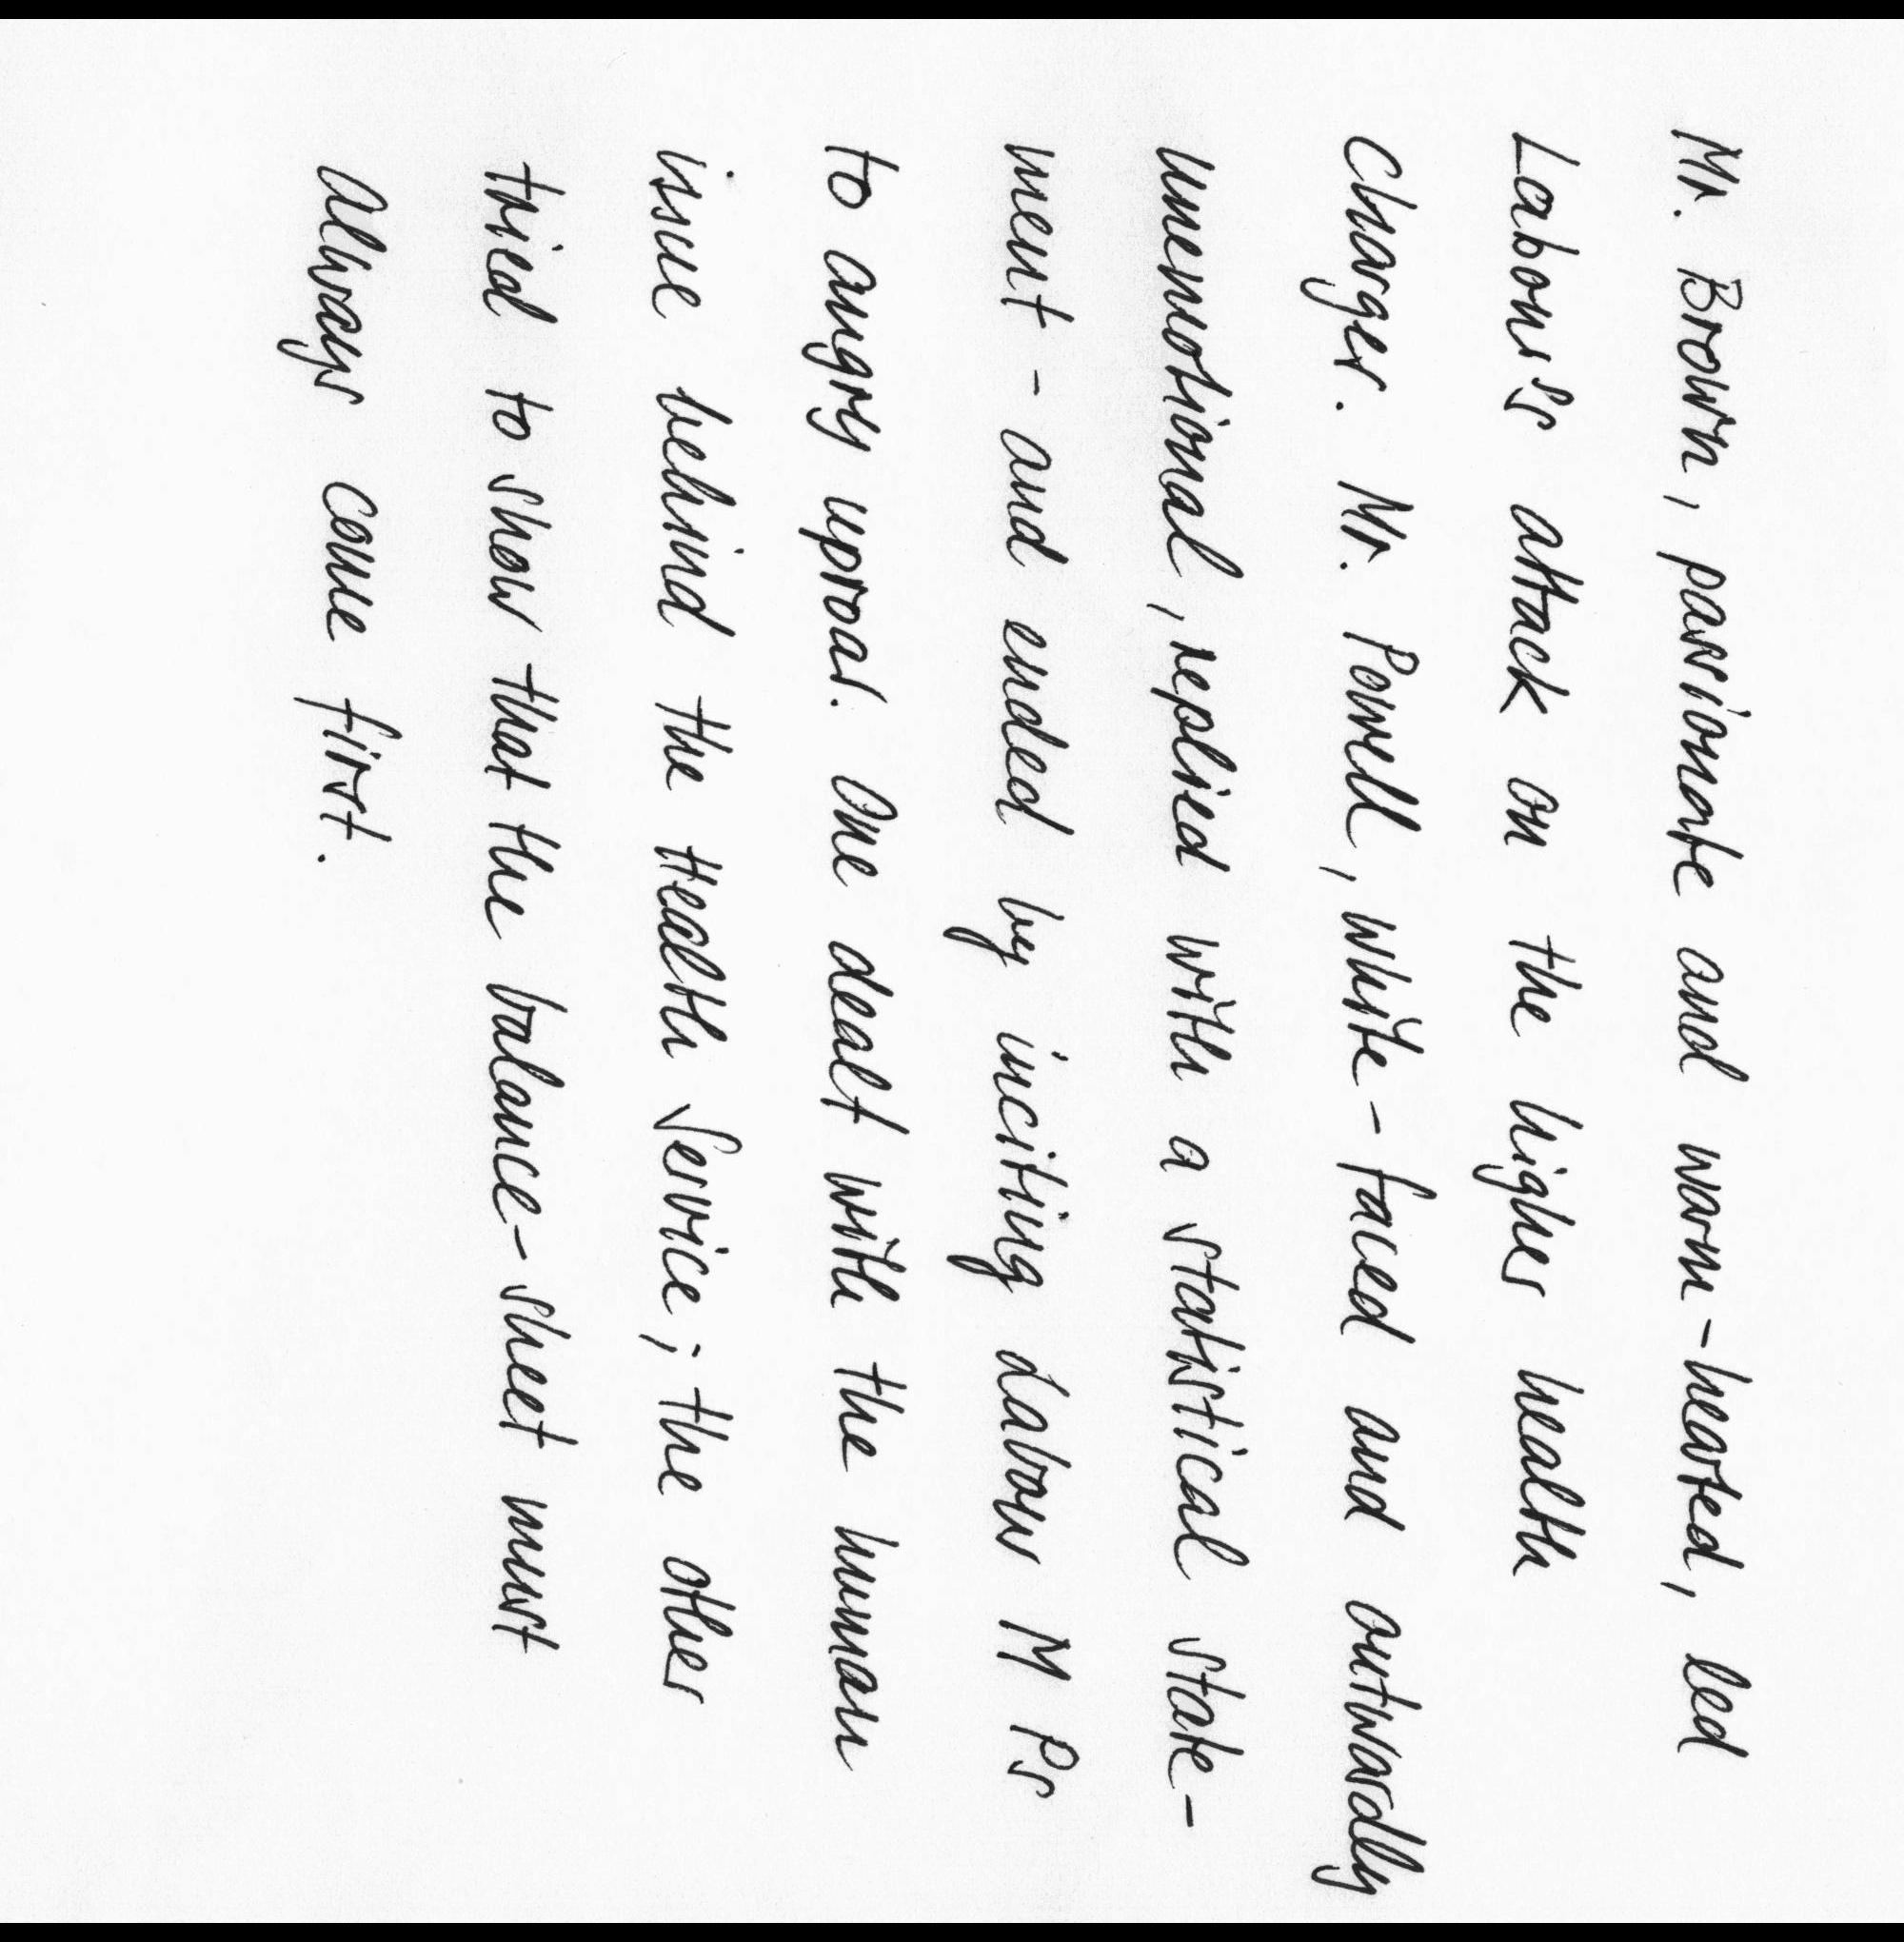 Mr. Brown, passionate and warm-hearted, led
Labour's attack on the higher health
Charges. Mr. Powell, white-faced and outwardly
unemotional, replied with a statistical state-
ment - and ended by inciting Labour M Ps
to angry uproar. One dealt with the human
issue behind the Health Service; the other
tried to show that the balance-sheet must
always come first.